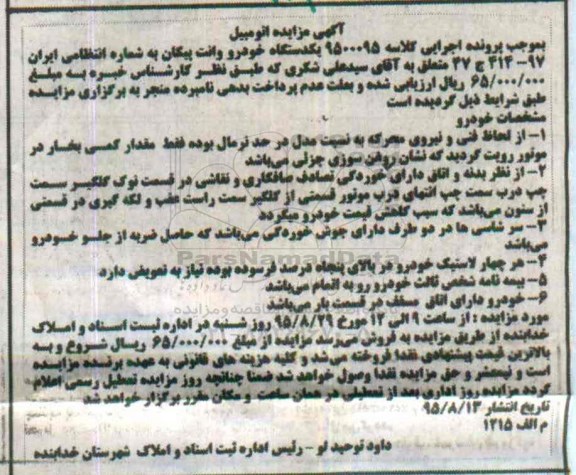 آگهی مزایده اتومبیل
بموجب پرونده اجرایی کلاسه ۹۵۰۰۰۹۵ یکدستگاه خودرو وانت پیکان به شماره انتظامی ایران
۹۷- ۴۱۴ ج ۲۷ متعلق به آقای سیدعلی شکری که طبق نظر کارشناس خبره به مبلغ
۶۵/۰۰۰/۰۰۰ ریال ارزیابی شده و بعلت عدم پرداخت بدهی نامبرده منجر به برگزاری مزایده
طبق شرایط ذیل گردیده است
مشخصات خودرو
۱- از لحاظ فنی و نیروی محرکه به نسبت مدل در حد نرمال بوده فقط مقدار کمی بخار در
موتور رویت گردید که نشان روغن سوزی جزئی میباشد
۲- از نظر بدنه و اتاق دارای خوردگی تصادف صافکاری و نقاشی در قسمت نوک گلگیر سمت
چپ درب سمت چپ انتهای درب موتور قسمتی از گلگیر سمت راست عقب و لکه گیری در قسمتی
از ستون میباشد که سبب کاهش قیمت خودرو میگردد
۳- سر شاسی ها در دو طرف دارای جوش خوردگی میباشد که حاصل ضربه از جلو خودرو
میباشد
۴- هر چهار لاستیک خودرو در بالای پنجاه درصد فرسوده بوده نیاز به تعویض دارد
۵- بیمه نامه شخص ثالث خودرو رو به اتمام میباشد
۶- خودرو دارای اتاق مسقف در قسمت بار میباشد
مورد مزایده : از ساعت ۹ الی ۱۲ مورخ ۹۵/۸/۲۹ روز شنبه در اداره ثبت اسناد و املاک
خدابنده از طریق مزایده به فروش میرسد مزایده از مبلغ ۶۵/۰۰۰/۰۰۰ ریال شروع و به
بالاترین قیمت پیشنهادی نقدا فروخته می‌شد و کلیه هزینه های قانونی به عهده برنده مزایده
است و نیمعشر و حق مزایده نقدا وصول خواهد شد ضمنا چنانچه روز مزایده تعطیل رسمی اعلام
گردد مزایده روز اداری بعد از تعطیلی در همان ساعت و مکان مقرر برگزار خواهد شد
تاریخ انتشار ۹۵/۸/۱۳
م الف ۱۲۱۵
داود توحید لو - رئیس اداره ثبت اسناد و املاک شهرستان خدابنده
ParsNamadData